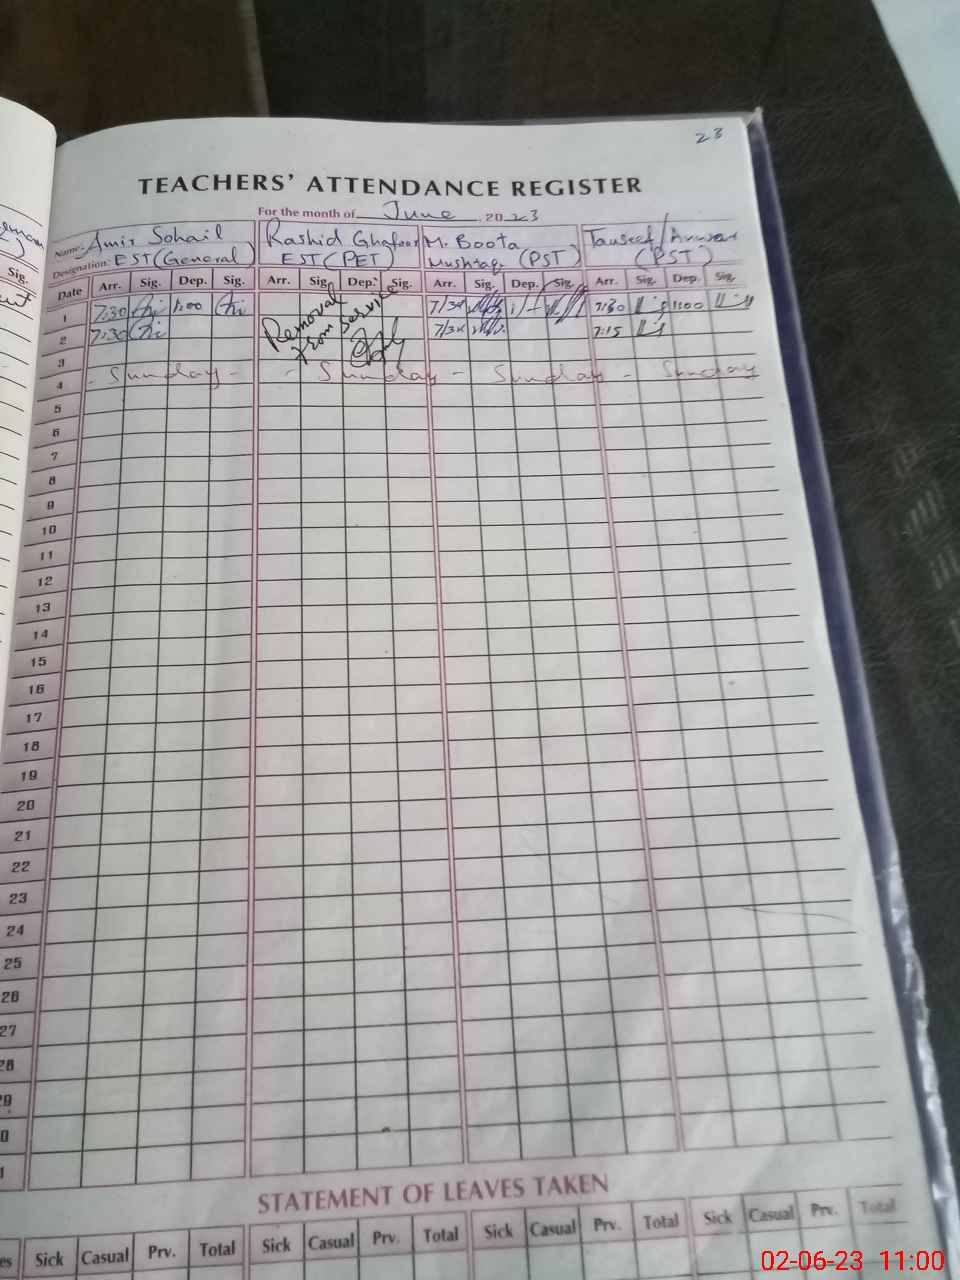 23
TEACHERS' ATTENDANCE REGISTER
For the month of June, 2023
Name: Amir Sohail Rashid Ghafoor M. Boota Tauseef Anwar
Designation: EST (General) EST (PET) Mushtaq (PST) (PST)
Sig.
Date Arr. Sig. Dep. Sig. Arr. Sig. Dep. Sig. Arr. Sig. Dep. Sig. Arr. Sig. Dep. Sig.
1 7:30 1:00 Removal 7/30 1/- 7:30 1:00
2 7:30 from Service 7/30 7:15
3
4 - Sunday - - Sunday - Sunday - Sunday
5
6
7
8
9
10
11
12
13
14
15
16
17
18
19
20
21
22
23
24
25
26
27
28
29
0
1
STATEMENT OF LEAVES TAKEN
es Sick Casual Prv. Total Sick Casual Prv. Total Sick Casual Prv. Total Sick Casual Prv. Total
02-06-23 11:00